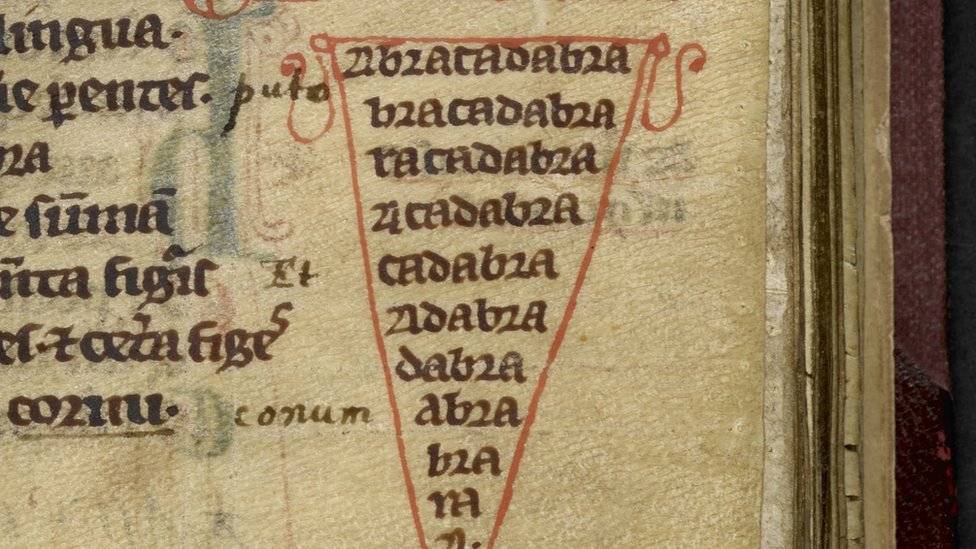 lingua.
ie ꝑentes. puto
bra
e sūmā
ñta figĩs Et
es ⁊ cet̾a fige
cornu. conum
Abracadabra
bracadabra
racadabra
Acadabra
cadabra
Adabra
dabra
abra
bra
ra
A.